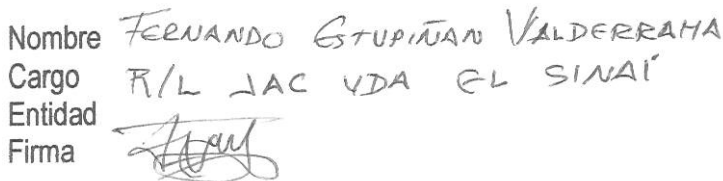 Nombre FERNANDO ESTUPIÑAN VALDERRAMA
Cargo R/L JAC VDA EL SINAÍ
Entidad
Firma